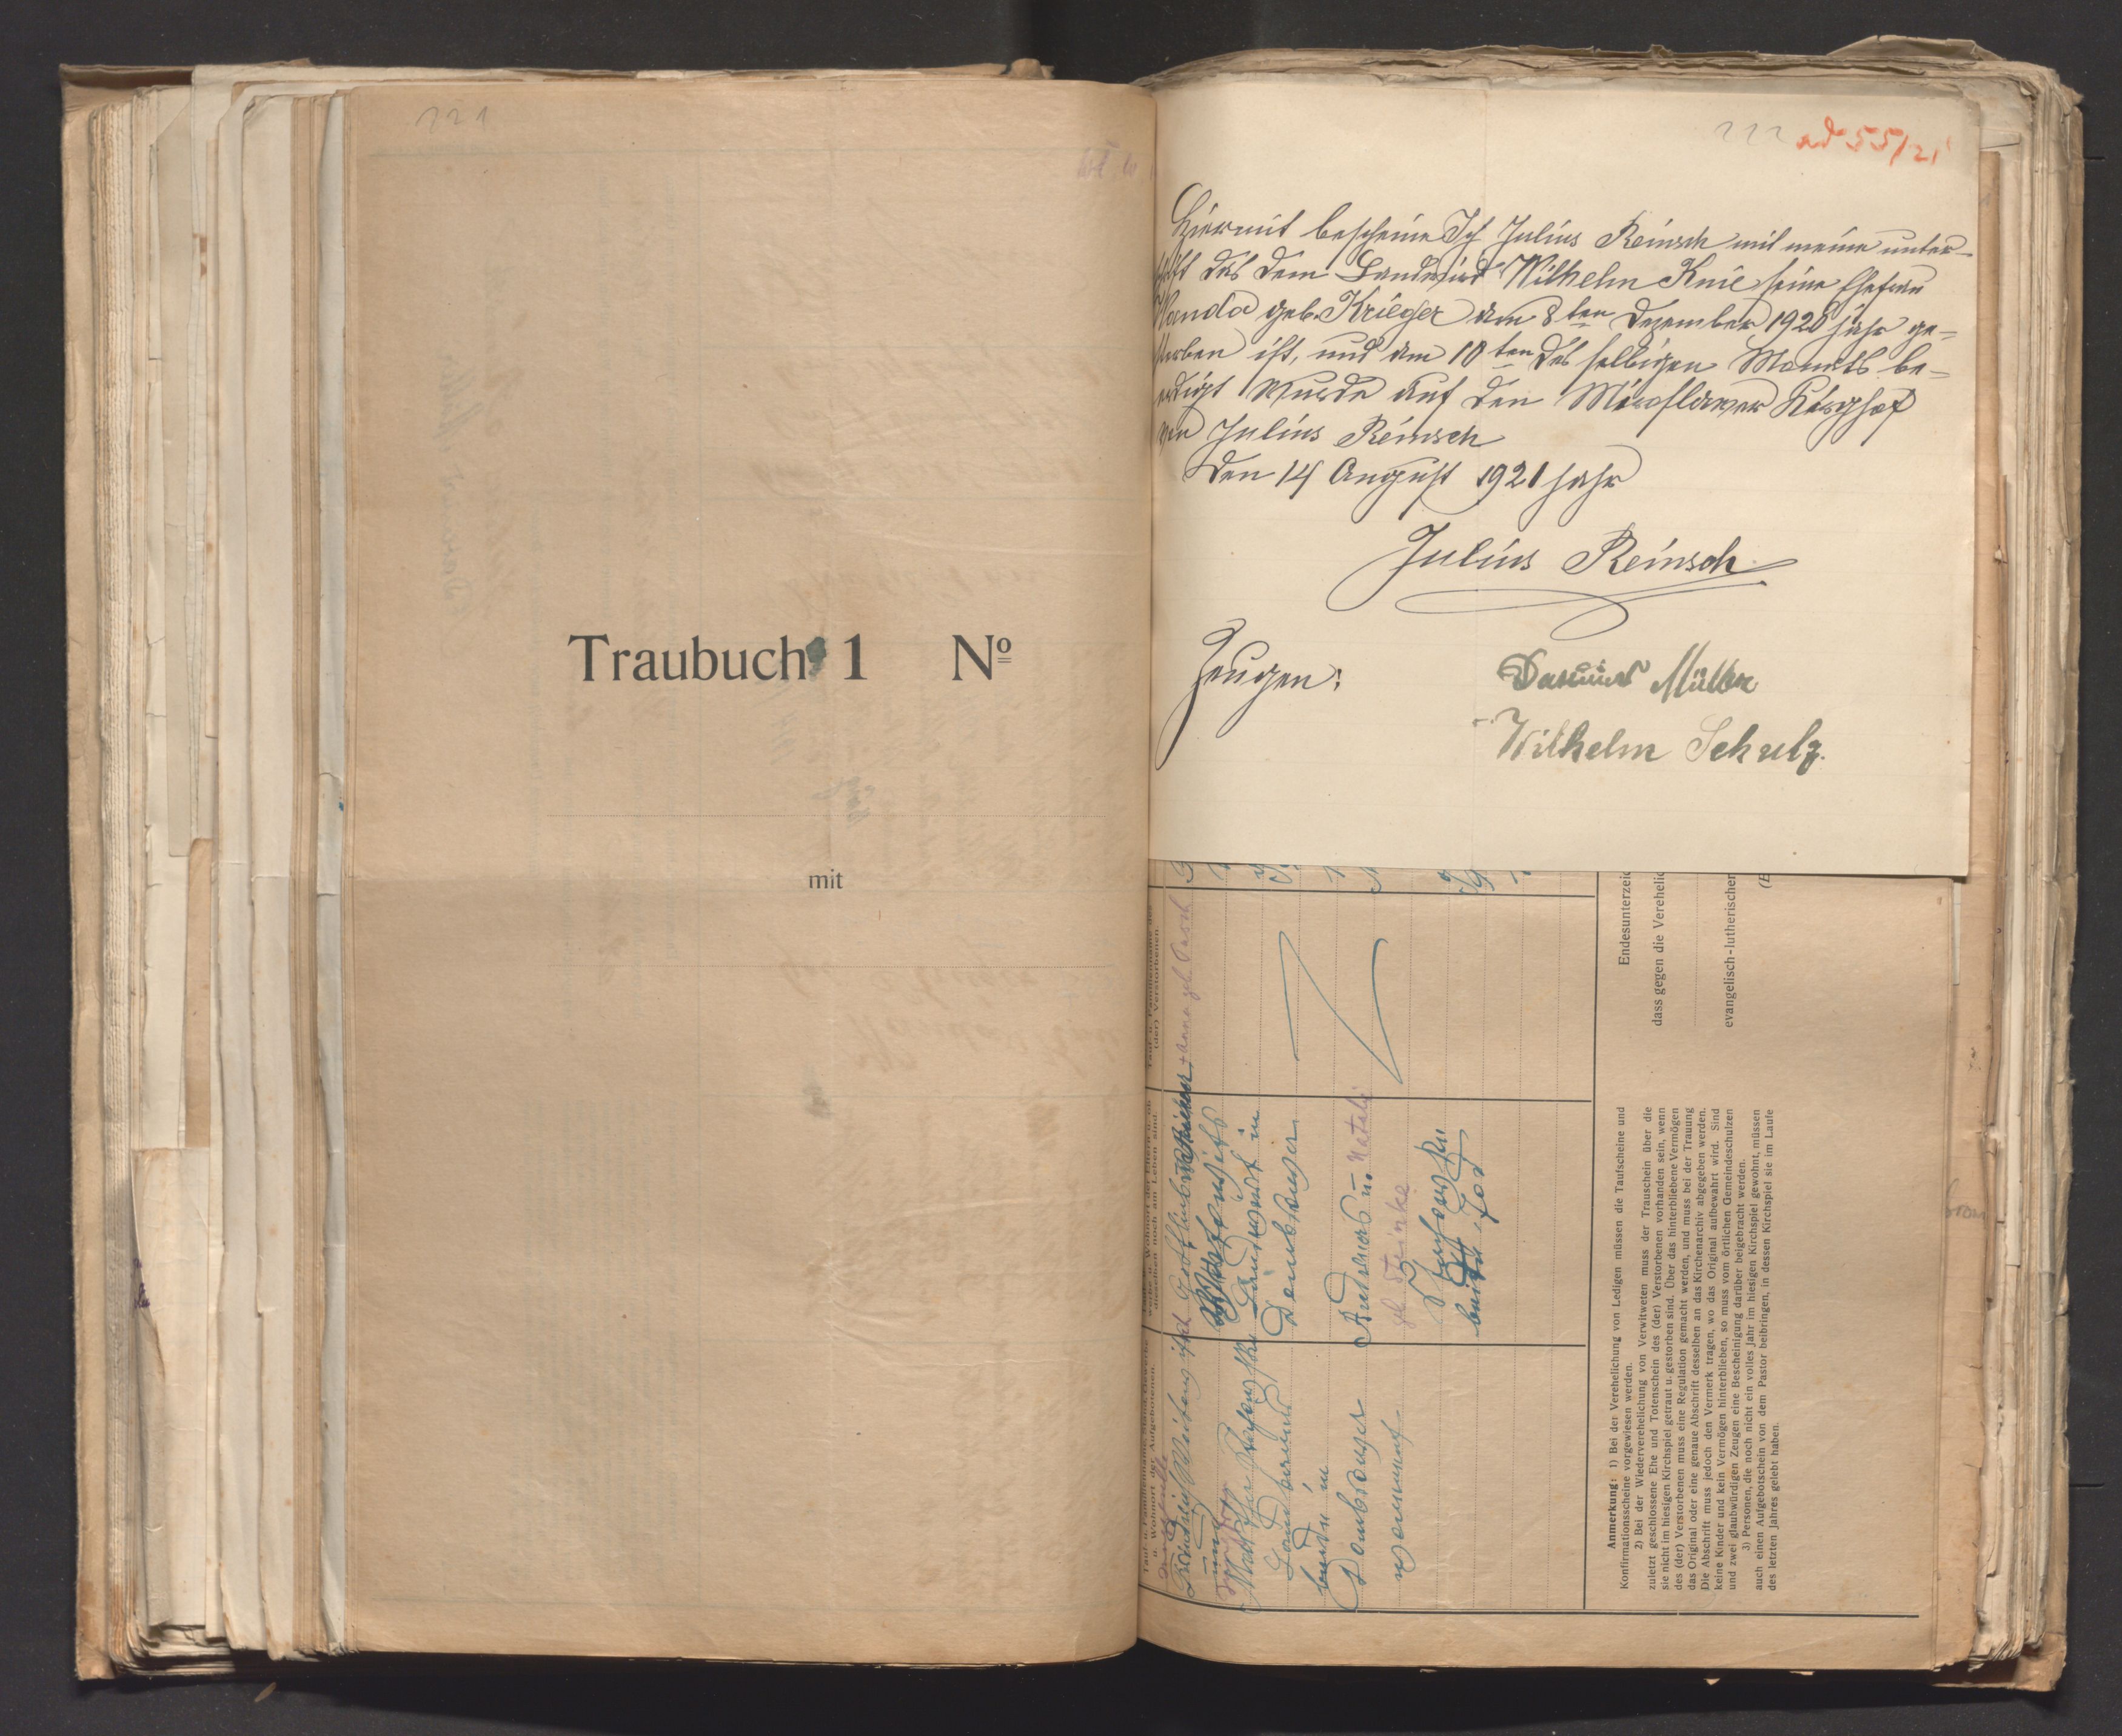 121
Traubuch 1 Nº
mit
122 ad 55/21
Hiermit bescheine Ich Julius Reinsch mit meine unter-
schift das dem Landwird Wilhelm Knie seine Ehefrau
Wanda geb. Krieger am 8ten Dezember 1920 jahr ge=
storben ist, und am 10ten des selbigen Monats be=
erdigt wurde auf den Miroslawer Kirghof
von Julius Reinsch
den 14 August 1921 jahr
Julius Reinsch
Zeugen:
Müller
Wilhelm Schulz.
Tauf- u. Familienname, Stand, Gewerbe
u. Wohnort der Aufgebotenen.
dieselben noch am Leben sind.
(der) Verstorbenen
Anna geb.
Landwirt in
Natalie
geb Steinke
beide tod
beide in
wohnhaft
Endesunterzeic
dass gegen die Verehelic
evangelisch-lutherischer
(E
Anmerkung: 1) Bei der Verehelichung von Ledigen müssen die Taufscheine und
Konfirmationsscheine vorgewiesen werden.
2) Bei der Wiederverehelichung von Verwitweten muss der Trauschein über die
zuletzt geschlossene Ehe und Totenschein des (der) Verstorbenen vorhanden sein, wenn
sie nicht im hiesigen Kirchspiel getraut u. gestorben sind. Über das hinterbliebene Vermögen
des (der) Verstorbenen muss eine Regulation gemacht werden, und muss bei der Trauung
das Original oder eine genaue Abschrift desselben an das Kirchenarchiv abgegeben werden.
Die Abschrift muss jedoch den Vermerk tragen, wo das Original aufbewahrt wird. Sind
keine Kinder und kein Vermögen hinterblieben, so muss vom örtlichen Gemeindeschulzen
und zwei glaubwürdigen Zeugen eine Bescheinigung darüber beigebracht werden.
3) Personen, die noch nicht ein volles Jahr im hiesigen Kirchspiel gewohnt, müssen
auch einen Aufgebotschein von dem Pastor beibringen, in dessen Kirchspiel sie im Laufe
des letzten Jahres gelebt haben.